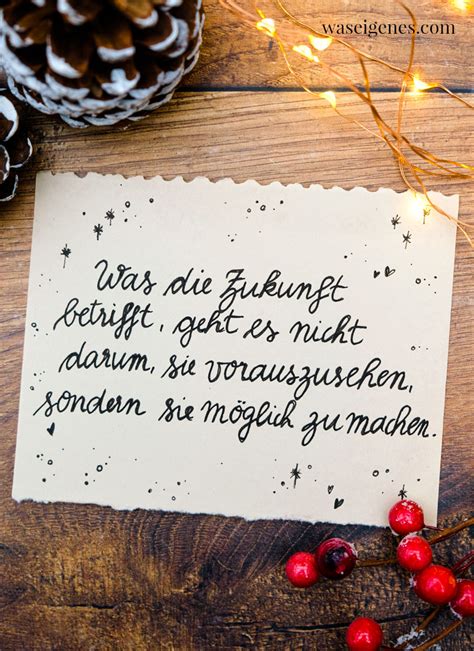 waseigenes.com
Was die Zukunft
betrifft, geht es nicht
darum, sie vorauszusehen,
sondern sie möglich zu machen.